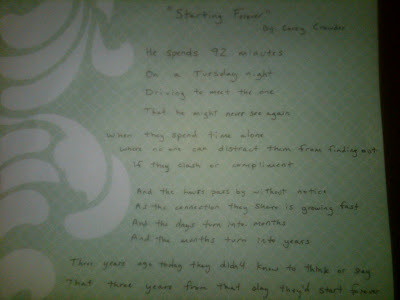 "Starting Forever"
By: Casey Crowder
He spends 92 minutes
On a Tuesday night
Driving to meet the one
That he might never see again
When they spend time alone
Where no one can distract them from finding out
If they clash or compliment
And the hours pass by without notice
As the connection they share is growing fast
And the days turn into months
And the months turn into years
Three years ago today they didn't know to think or say
That three years from that day they'd start forever